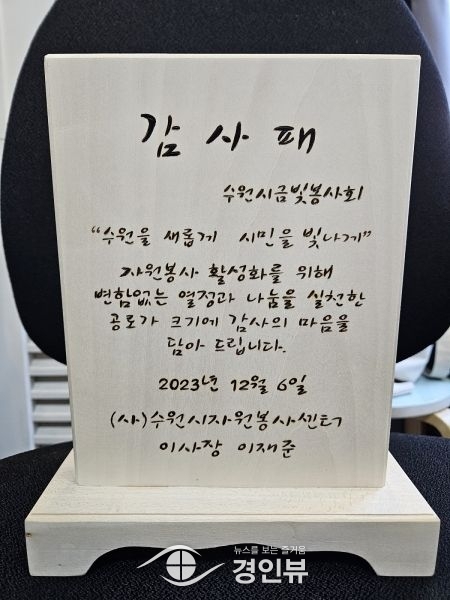 감사패
수원시금빛봉사회
“수원을 새롭게 시민을 빛나게”
자원봉사 활성화를 위해
변함없는 열정과 나눔을 실천한
공로가 크기에 감사의 마음을
담아 드립니다.
2023년 12월 6일
(사)수원시자원봉사센터
이사장 이재준
뉴스를 보는 즐거움
경인뷰